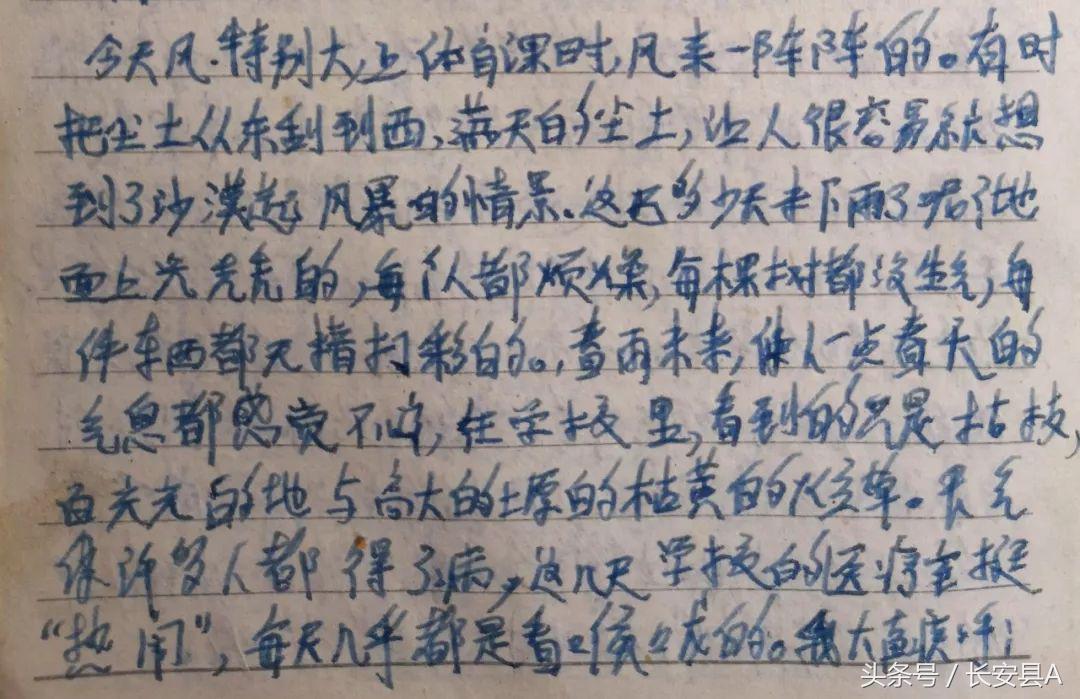 今天风特别大,上体育课时,风来一阵阵的。有时
把尘土从东刮到西,满天的尘土,让人很容易就想
到了沙漠起风暴的情景。这么多少天未下雨了呢?地
面上光光的,每个人都烦燥,每棵树都没生气,每
件东西都无精打彩的。春雨未来,使人一点春天的
气息都感觉不到,在学校里,看到的只是枯枝,
白光光的地与高大的土塬的枯黄的草。天气
使许多人都得了病,这几天学校的医疗室挺
“热闹”,每天几乎都是看
头条号/长安县A